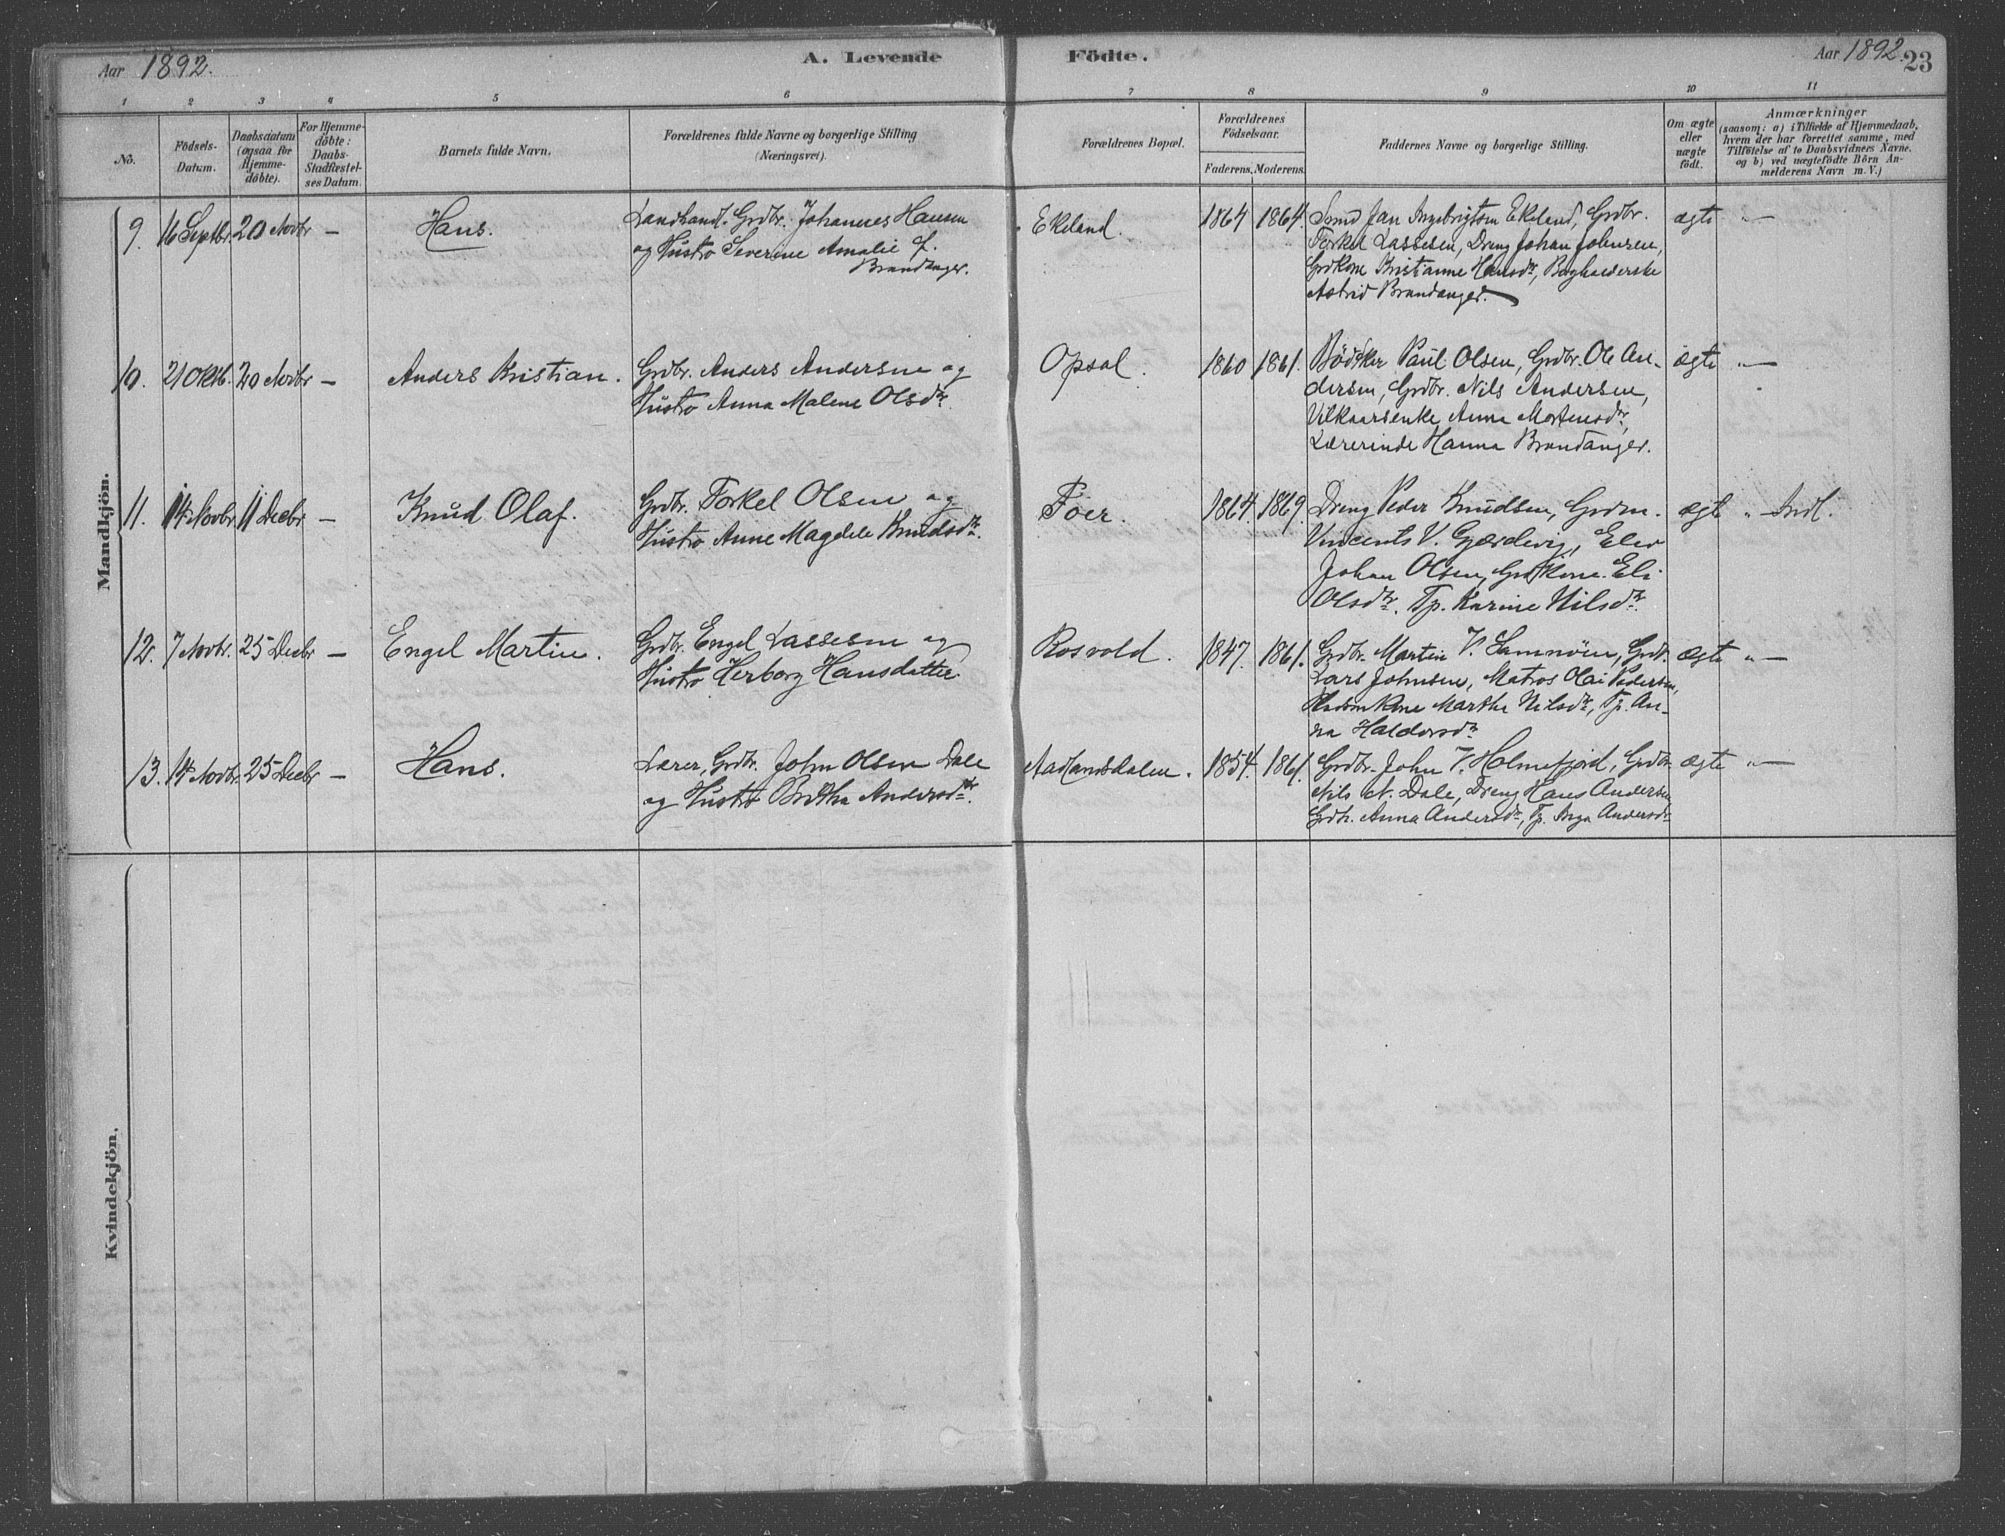 Aar 1892. A. Levende Födte. Aar 1892. 23
1 2 3 4 5 6 7 8 9 10 11
No.
Födsels-
Datum.
Daabsdatum
(ogsaa for
Hjemme-
döbte).
For Hjemme-
döbte:
Daabs-
Stadfæstel-
ses Datum.
Barnets fulde Navn.
Forældrenes fulde Navne og borgerlige Stilling
(Næringsvei).
Forældrenes Bopæl.
Forældrenes
Födselsaar.
Faderens. Moderens.
Faddernes Navne og borgerlige Stilling.
Om ægte
eller
uægte
født.
Anmærkninger
(saasom: a) i Tilfælde af Hjemmedaab,
hvem der har forrettet samme, med
Tilföielse af to Daabsvidners Navne,
og b) ved uægtefödte Börn An-
melderens Navn m. V.)
Mandkjön.
9. 16 Septbr. 20 Novbr — Hans.
Landhandl. Grdbr. Johannes Hansen
og Hustro Severine Amalie f.
Brandanger.
Ekeland. 1864 1864.
Smed Jan Ingebrigtsen Ekeland, Grdbr.
Torkel Lassesen, Dreng Johan Johnsen,
Grdkone Kristianne Hansdr, Boghandlerske
Astrid Brandanger.
ægte "—
10. 21 Oktb. 20 Novbr — Anders Kristian.
Grdbr. Anders Andersen og
Hustro Anna Malene Olsdtr.
Opsal. 1860 1861.
Bødker Paul Olsen, Grdbr. Ole An-
dersen, Grdbr. Nils Andersen,
Vilkaarsenke Anna Mortensdr,
Lærerinde Hanna Brandanger.
ægte "—
11. 14 Novbr 11 Decbr — Knud Olaf.
Grdbr. Torkel Olsen og
Hustro Anne Magdele Knudsdtr.
Föer. 1864. 1869.
Dreng Peder Knudsen, Grdm.
Vincents V. Gjerdevig, Elev
Johan Olsen, Grdkone Eli
Olsdtr. Tp. Karine Nilsdtr.
ægte " Indl.
12. 7 Novbr. 25 Decbr — Engel Martin.
Grdbr. Engel Lassesen og
Hustro Herborg Hansdatter.
Rosvold. 1847. 1861.
Grdbr. Martin V. Samnöen, Grdbr.
Lars Johnsen, Matros Olai Pedersen,
Husmkone Marthe Nilsdr, Tp. An-
na Haldorsdr
ægte "—
13. 14 Novbr. 25 Decbr — Hans.
Lærer, Grdbr. John Olsen Dale
og Hustro Brithe Andersdtr.
Aadlandsdalen. 1854. 1861.
Grdbr. John V. Holmefjord, Grdbr.
Nils N. Dale, Dreng Hans Andersen,
Grdk. Anna Andersdr, Tp. Inga Andersdr
ægte "—
Kvindekjön.